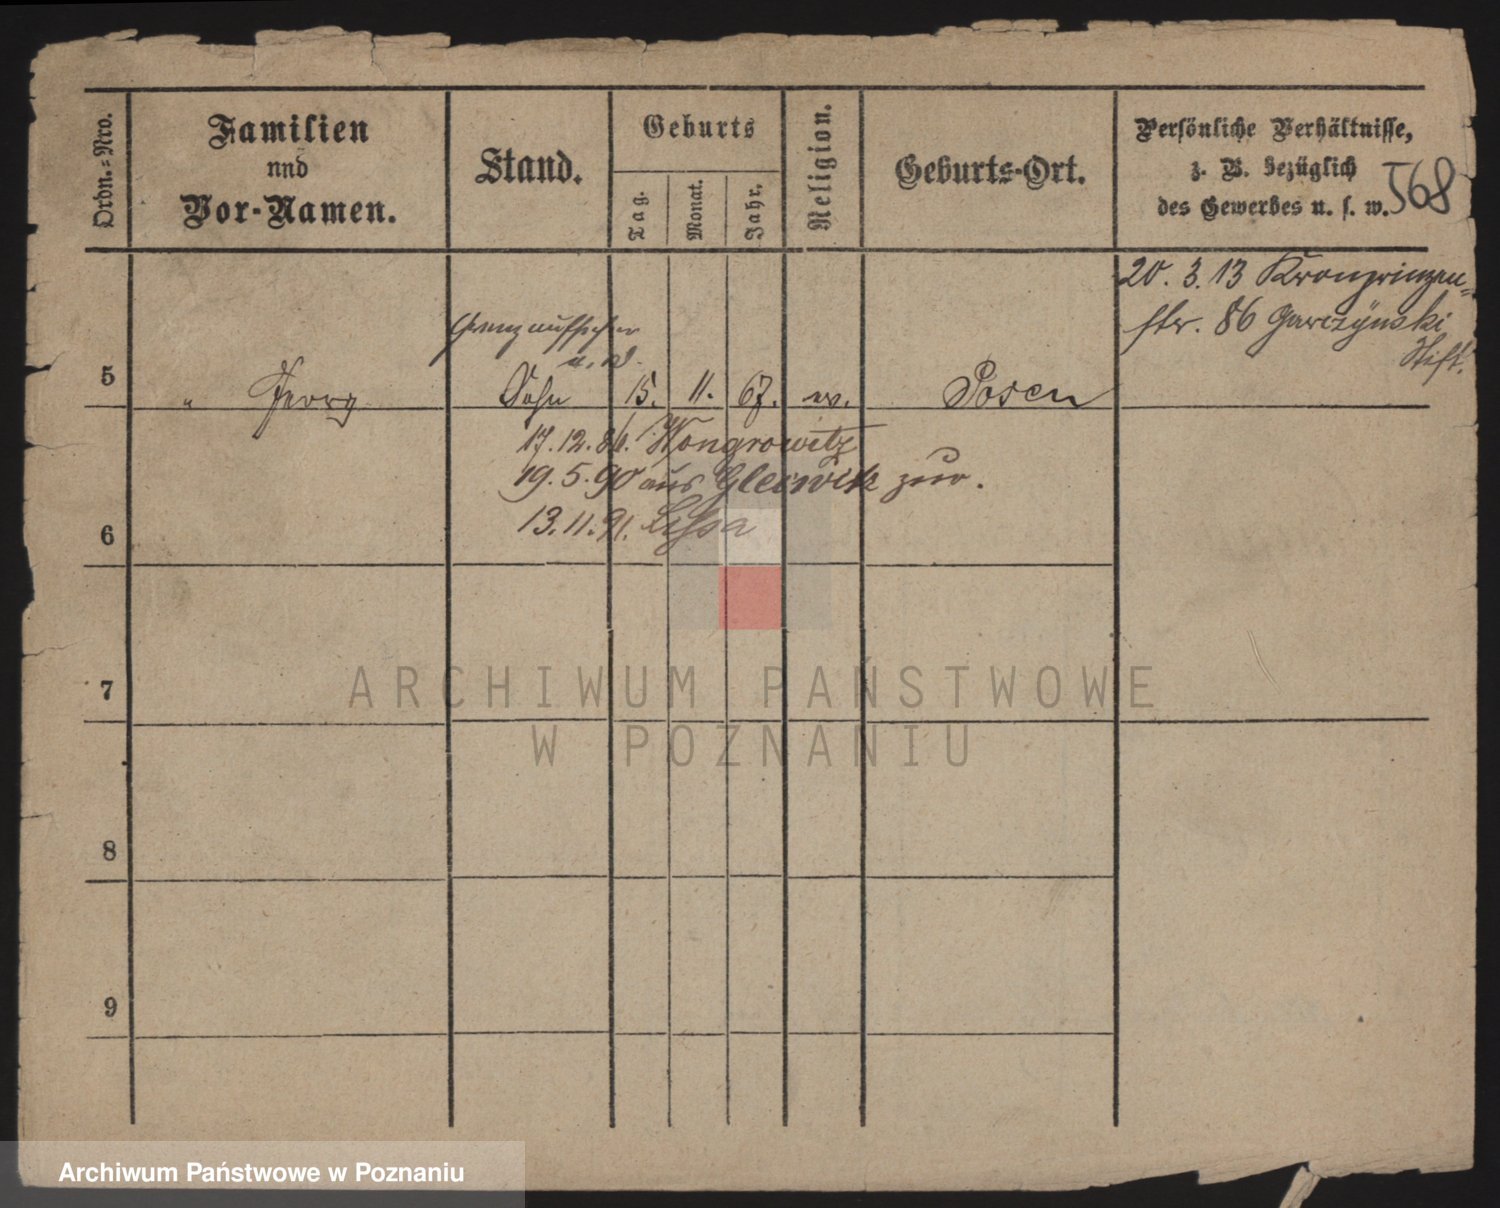 Ordn.-Nro.
Familien
und
Vor-Namen.
Stand.
Geburts
Tag.
Monat.
Jahr.
Religion.
Geburts-Ort.
Persönliche Verhältnisse,
z. B. bezüglich
des Gewerbes u. s. w.
568
20. 3. 13 Kronprinzen-
str. 86 Garczynski
Stift.
Grenzaufseher
a. D.
5
" Georg
Sohn
15.
11.
67.
ev.
Posen
17.12.86. Wongrowitz
19.5.90 aus Gleiwitz zur.
13.11.91. Lissa
6
7
8
9
ARCHIWUM PAŃSTWOWE
W POZNANIU
Archiwum Państwowe w Poznaniu